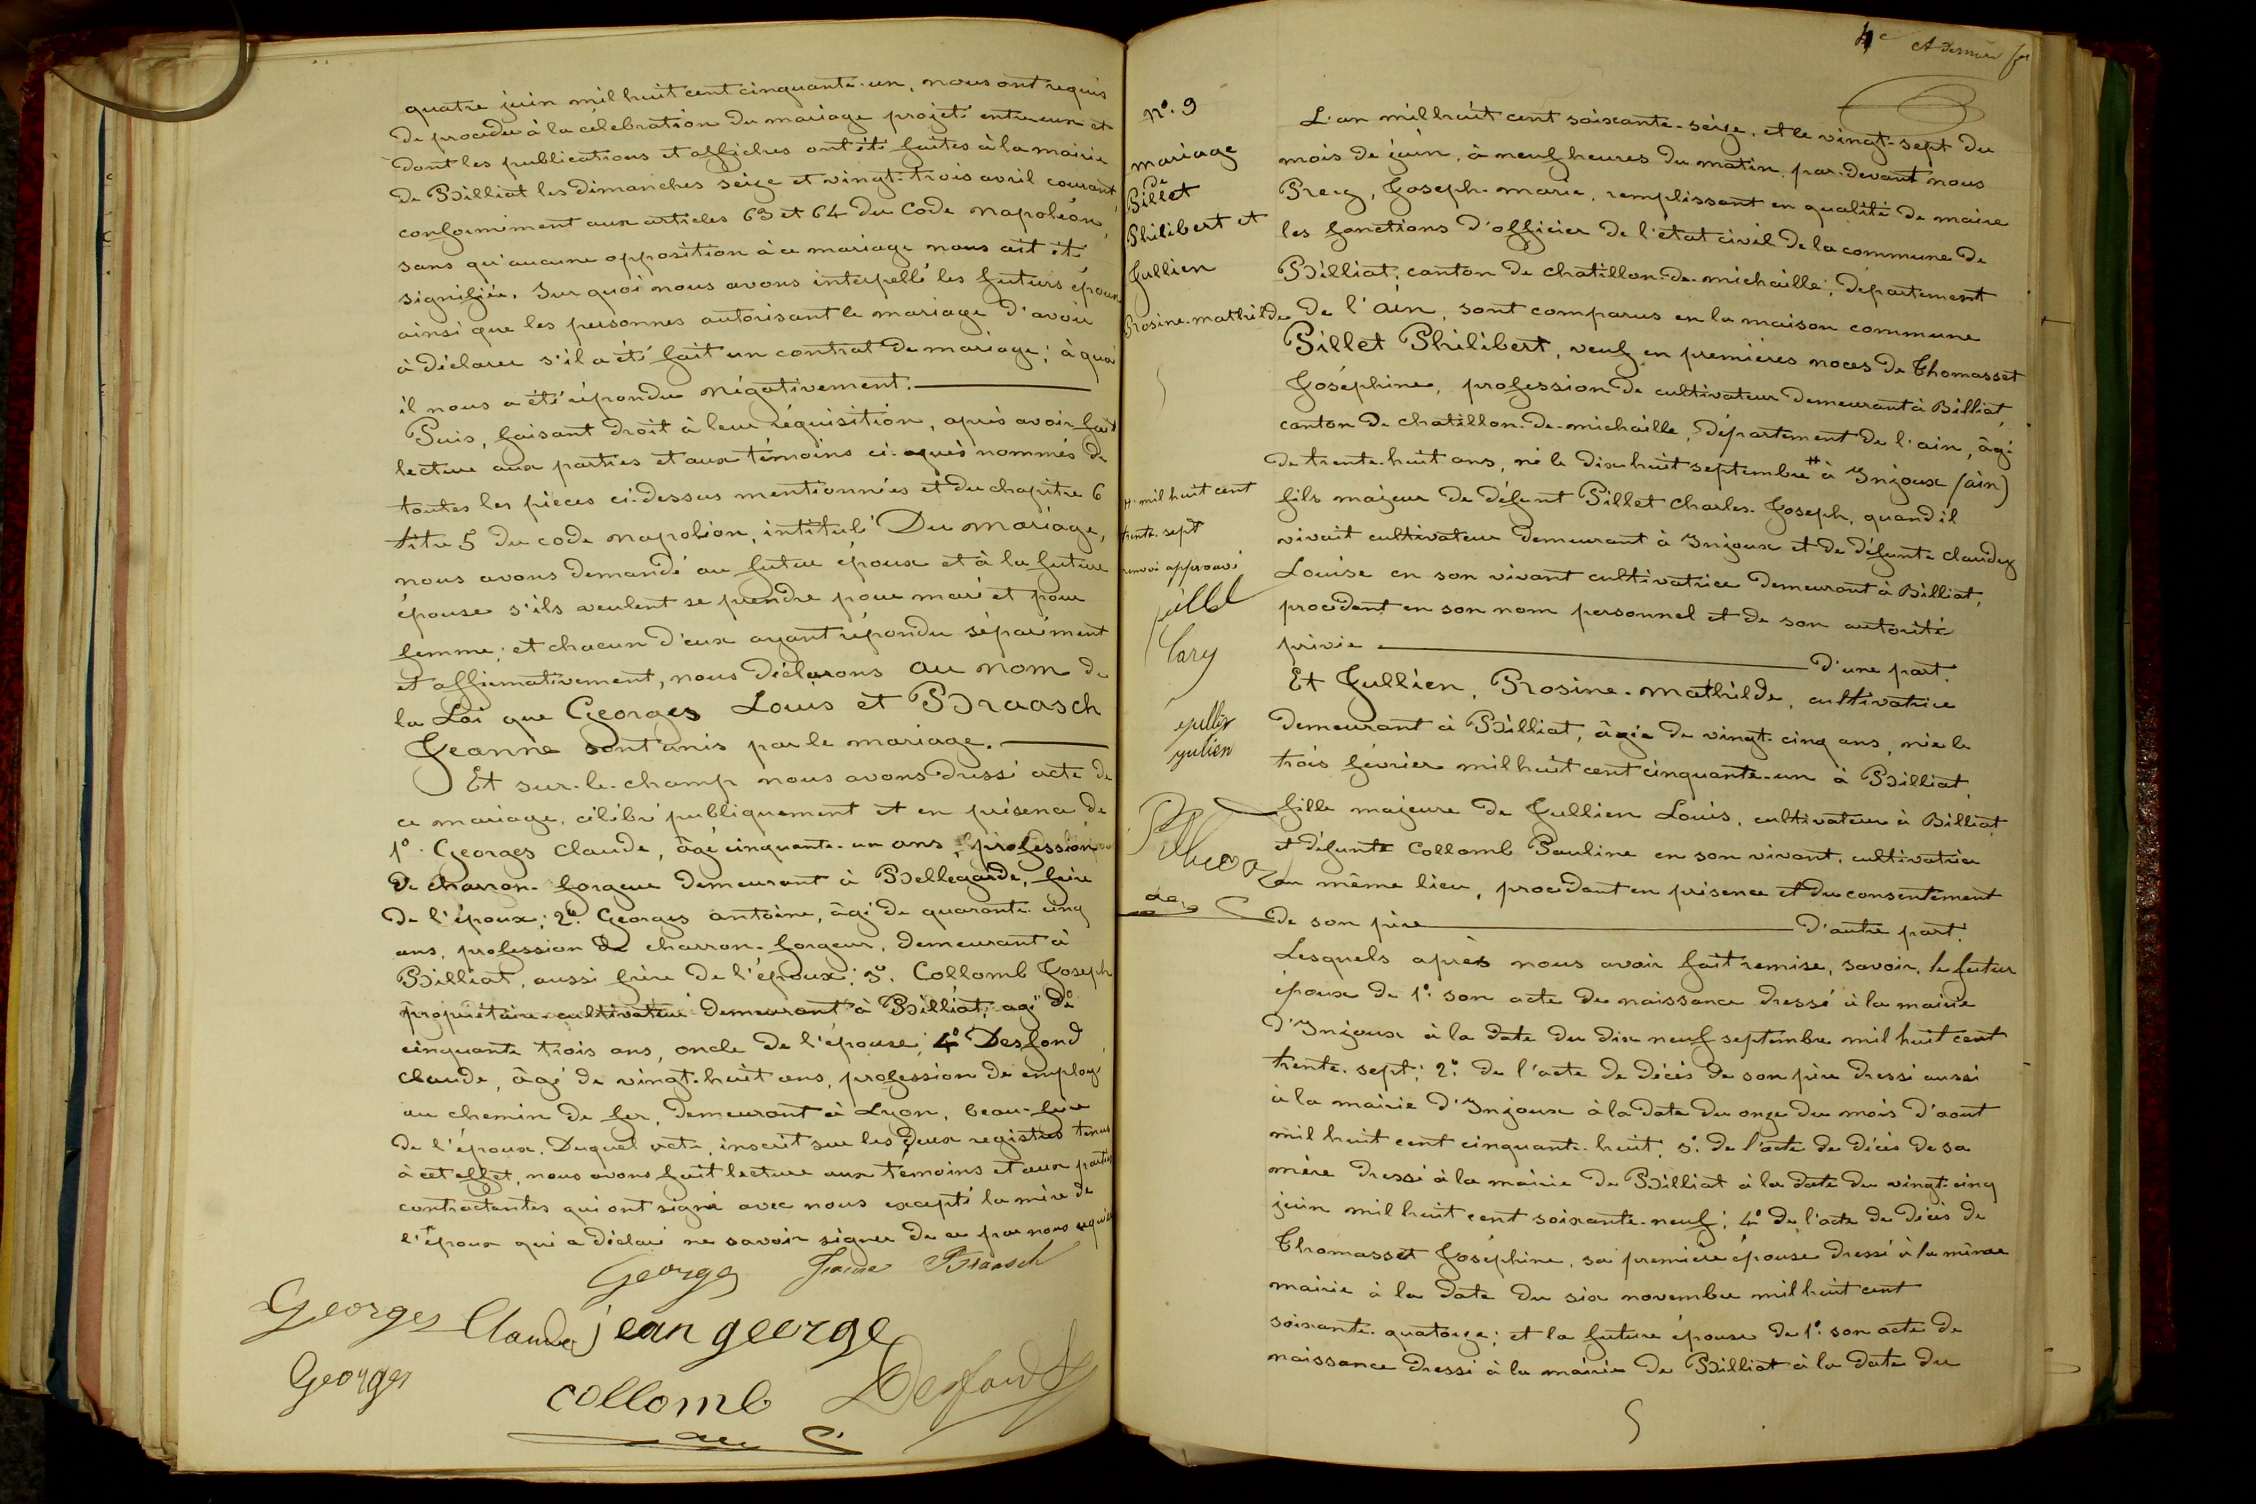 quatre juin mil huit cent cinquante-un, nous ont requis
de procéder à la célébration du mariage projeté entre eux et
dont les publications et affiches ont été faites à la mairie
de Billiat les dimanches seize et vingt-trois avril courant,
conformément aux articles 63 et 64 du Code napoléon,
sans qu'aucune opposition à ce mariage nous ait été
signifiée. Sur quoi nous avons interpellé les futurs époux
ainsi que les personnes autorisant le mariage d'avoir
à déclarer s'il a été fait un contrat de mariage; à quoi
il nous a été répondu négativement.
Puis, faisant droit à leur réquisition, après avoir fait
lecture aux parties et aux témoins ci-après nommés de
toutes les pièces ci-dessus mentionnées et du chapitre 6
titre 5 du code napoléon, intitulé Du Mariage,
nous avons demandé au futur époux et à la future
épouse s'ils veulent se prendre pour mari et pour
femme; et chacun d'eux ayant répondu séparément
et affirmativement, nous déclarons au nom de
la Loi que Georges Louis et Braasch
Jeanne sont unis par le mariage.
Et sur-le-champ nous avons dressé acte de
ce mariage, célébré publiquement et en présence de
1º Georges Claude, âgé cinquante-un ans, profession
de charron-forgeur demeurant à Bellegarde, frère
de l'époux; 2º Georges antoine, âgé de quarante-cinq
ans, profession de charron-forgeur, demeurant à
Billiat, aussi frère de l'époux; 3º. Collomb Joseph
propriétaire-cultivateur demeurant à Billiat, agé de
cinquante trois ans, oncle de l'épouse; 4º Desfond
Claude, âgé de vingt-huit ans, profession de employé
au chemin de fer, demeurant à Lyon, beau-frère
de l'époux. Duquel acte, inscrit sur les deux registres tenus
à cet effet, nous avons fait lecture aux témoins et aux parties
contractantes qui ont signé avec nous excepté la mère de
l'époux qui a déclaré ne savoir signer de ce par nous requise
Georges Jeanne Braasch
Georges Claude jean george
Georges
collomb Desfond
4e et dernier
nº. 9
mariage
de
Pillet
Philibert et
Jullien
Rosine-mathilde
# mil huit cent
trente-sept
renvoi approuvé
L'an mil huit cent soixante-seize, et le vingt-sept du
mois de juin, à neuf heures du matin, par-devant nous
Joseph-marie, remplissant en qualité de maire
les fonctions d'officier de l'état civil de la commune de
Billiat, canton de chatillon-de-michaille, département
de l'ain, sont comparus en la maison commune
Pillet Philibert, veuf en premières noces de Thomasset
Joséphine, profession de cultivateur demeurant à Billiat,
canton de chatillon-de-michaille, département de l'ain, âgé
de trente-huit ans, né le dix huit septembre # à Injoux (ain)
fils majeur de défunt Pillet Charles-Joseph, quand il
vivait cultivateur demeurant à Injoux et de défunte claudey
Louise en son vivant cultivatrice demeurant à Billiat,
procédant en son nom personnel et de son autorité
privée d'une part.
Et Jullien, Rosine-Mathilde, cultivatrice
demeurant à Billiat, âgée de vingt-cinq ans, née le
trois février mil huit cent cinquante-un à Billiat
fille majeure de Jullien Louis, cultivateur à Billiat
et défunte Collomb Pauline en son vivant, cultivatrice
au même lieu, procédant en présence et du consentement
de son père d'autre part.
Lesquels après nous avoir fait remise, savoir, le futur
époux de 1º: son acte de naissance dressé à la mairie
d'Injoux à la date du dix neuf septembre mil huit cent
trente-sept; 2º: de l'acte de décès de son père dressé aussi
à la mairie d'Injoux à la date du onze du mois d'aout
mil huit cent cinquante-huit; 3º: de l'acte de décès de sa
mère dressé à la mairie de Billiat à la date du vingt-cinq
juin mil huit cent soixante-neuf; 4º de l'acte de décès de
Thomasset Joséphine, sa première épouse dressé à la même
mairie à la date du six novembre mil huit cent
soixante-quatorze; et la future épouse de 1º: son acte de
naissance dressé à la mairie de Billiat à la date du